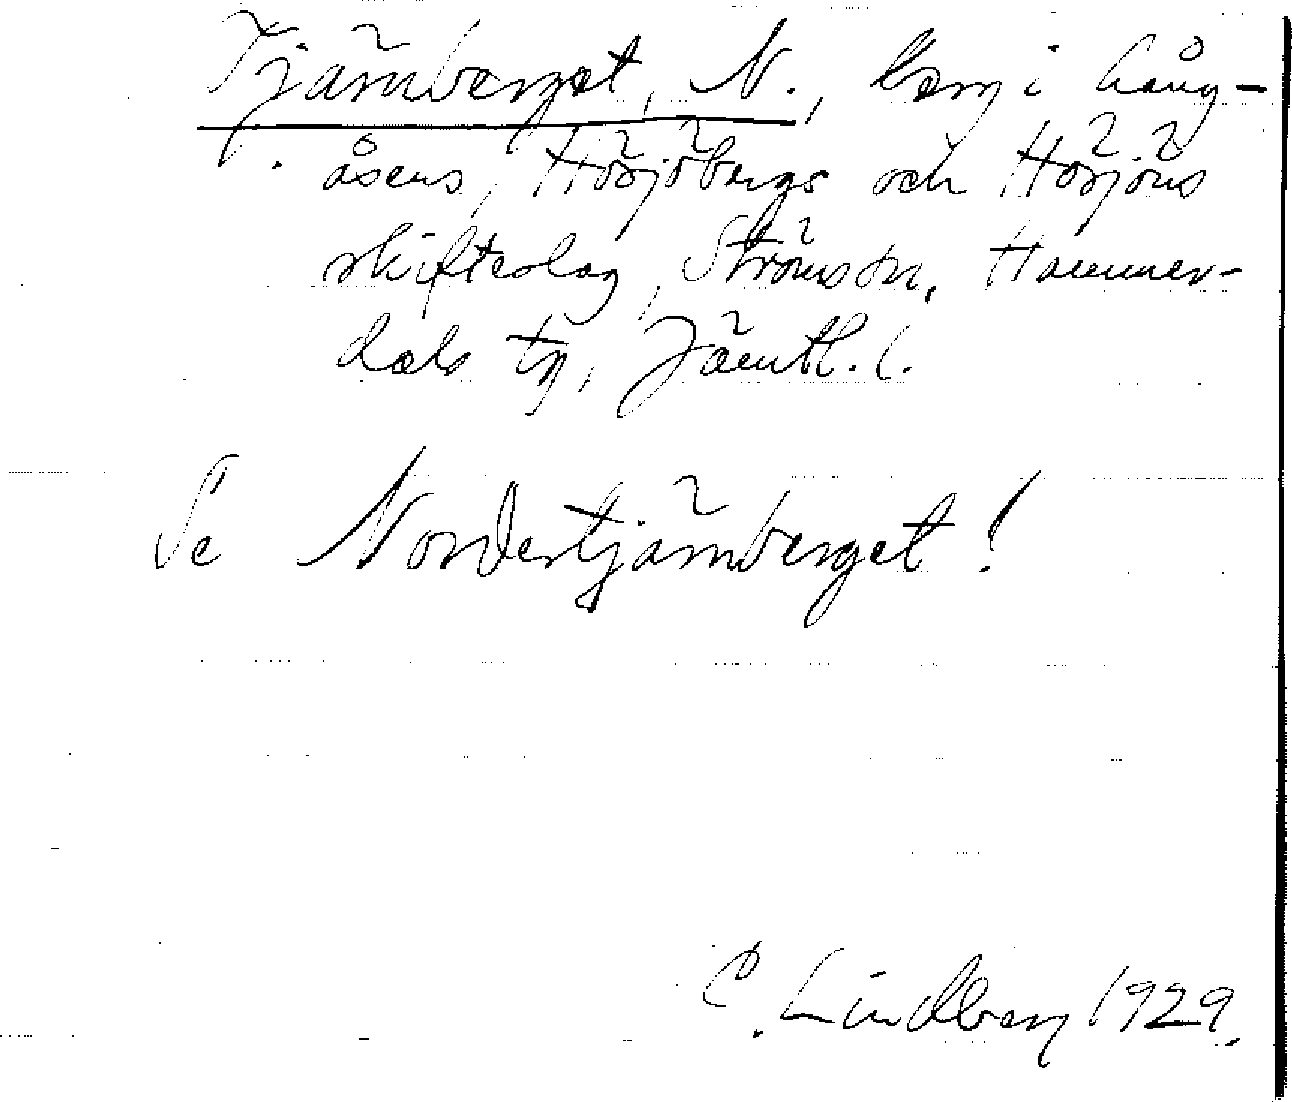 Tjärnberget, N., berg i Lång-
åsens, Hösjöbergs och Hösjöns
skifteslag, Ströms sn, Hammer-
dals tg, Jämtl. l.
Se Nordertjärnberget!
C. Lindberg 1929.